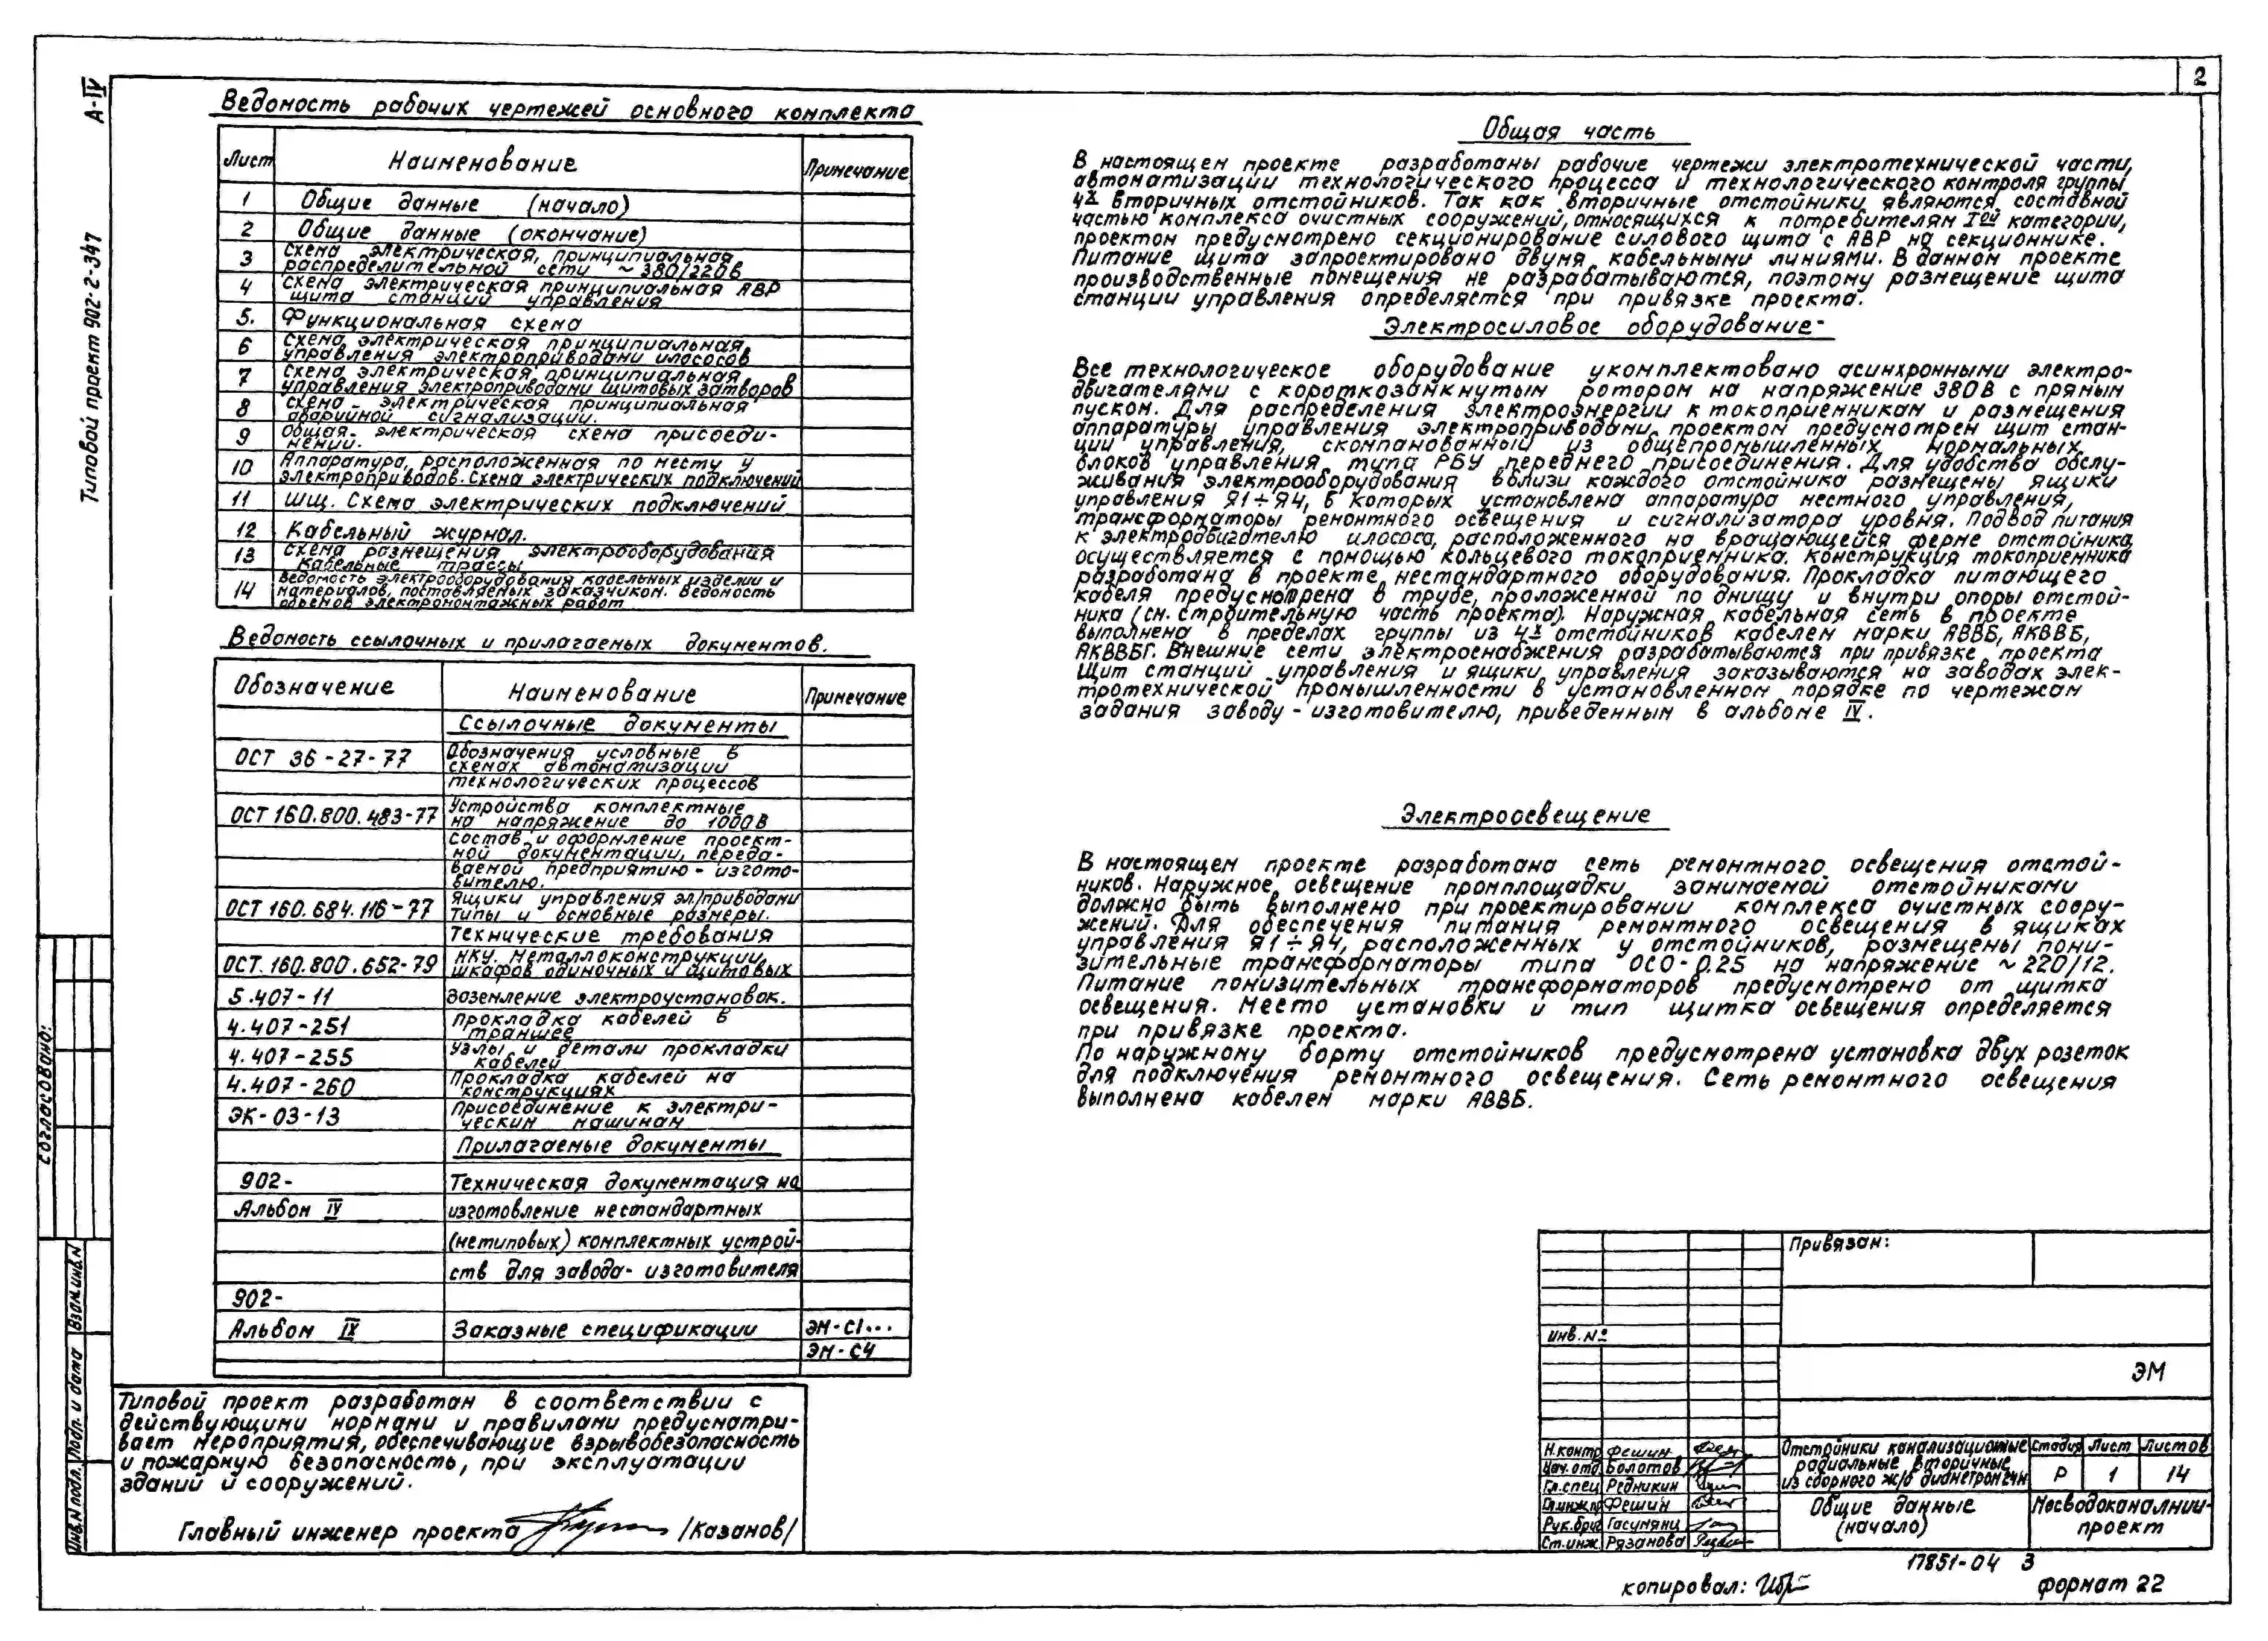 2
А-IV
Типовой проект 902-2-347
Ведомость рабочих чертежей основного комплекта
Лист Наименование Примечание
1 Общие данные (начало)
2 Общие данные (окончание)
3 Схема электрическая, принципиальная
распределительной сети ~380/220В
4 Схема электрическая принципиальная АВР
щита станций управления
5. Функциональная схема
6 Схема электрическая принципиальная
управления электроприводами илососов
7 Схема электрическая принципиальная
управления электроприводами щитовых затворов
8 Схема электрическая принципиальная
аварийной сигнализации.
9 Общая электрическая схема присоеди-
нений.
10 Аппаратура, расположенная по месту у
электроприводов. Схема электрических подключений
11 ШЩ. Схема электрических подключений
12 Кабельный журнал.
13 Схема размещения электрооборудования
Кабельные трассы
14 Ведомость электрооборудования кабельных изделий и
материалов, поставляемых заказчиком. Ведомость
объемов электромонтажных работ
Ведомость ссылочных и прилагаемых документов.
Обозначение Наименование Примечание
Ссылочные документы
ОСТ 36-27-77 Обозначения условные в
схемах автоматизации
технологических процессов
ОСТ 160.800.483-77 Устройства комплектные
на напряжение до 1000В
Состав и оформление проект-
ной документации, переда-
ваемой предприятию - изгото-
вителю.
ОСТ 160.684.116-77 Ящики управления эл/приводами
Типы и основные размеры.
Технические требования
ОСТ.160.800.652-79 НКУ. Металлоконструкции,
шкафов одиночных и щитовых
5.407-11 Заземление электроустановок.
4.407-251 Прокладка кабелей в
траншее
4.407-255 Узлы и детали прокладки
кабелей
4.407-260 Прокладка кабелей на
конструкциях
ЭК-03-13 Присоединение к электри-
ческим машинам
Прилагаемые документы
902- Техническая документация на
Альбом IV изготовление нестандартных
(нетиповых) комплектных устрой-
ств для завода-изготовителя
902-
Альбом IX Заказные спецификации ЭМ-С1...
ЭМ-С4
Типовой проект разработан в соответствии с
действующими нормами и правилами предусматри-
вает мероприятия, обеспечивающие взрывобезопасность
и пожарную безопасность, при эксплуатации
зданий и сооружений.
Главный инженер проекта /Казанов/
Общая часть
В настоящем проекте разработаны рабочие чертежи электротехнической части,
автоматизации технологического процесса и технологического контроля группы
4х вторичных отстойников. Так как вторичные отстойники являются составной
частью комплекса очистных сооружений, относящихся к потребителям Iой категории,
проектом предусмотрено секционирование силового щита с АВР на секционнике.
Питание щита запроектировано двумя кабельными линиями. В данном проекте
производственные помещения не разрабатываются, поэтому размещение щита
станции управления определяется при привязке проекта.
Электросиловое оборудование
Все технологическое оборудование укомплектовано асинхронными электро-
двигателями с короткозамкнутым ротором на напряжение 380В с прямым
пуском. Для распределения электроэнергии к токоприемникам и размещения
аппаратуры управления электроприводами проектом предусмотрен щит стан-
ции управления, скомпанованный из общепромышленных нормальных
блоков управления типа РБУ переднего присоединения. Для удобства обслу-
живания электрооборудования вблизи каждого отстойника размещены ящики
управления Я1÷Я4, в которых установлена аппаратура местного управления,
трансформаторы ремонтного освещения и сигнализатора уровня. Подвод питания
к электродвигателю илососа, расположенного на вращающейся ферме отстойника,
осуществляется с помощью кольцевого токоприемника. Конструкция токоприемника
разработана в проекте нестандартного оборудования. Прокладка питающего
кабеля предусмотрена в трубе, проложенной по днищу и внутри опоры отстой-
ника (см. строительную часть проекта). Наружная кабельная сеть в проекте
выполнена в пределах группы из 4х отстойников кабелем марки АВВБ, АКВВБ,
АКВВБГ. Внешние сети электроснабжения разрабатываются при привязке проекта
Щит станций управления и ящики управления заказываются на заводах элек-
тротехнической промышленности в установленном порядке по чертежам
задания заводу - изготовителю, приведенным в альбоме IV.
Электроосвещение
В настоящем проекте разработана сеть ремонтного освещения отстой-
ников. Наружное освещение промплощадки занимаемой отстойниками
должно быть выполнено при проектировании комплекса очистных соору-
жений. Для обеспечения питания ремонтного освещения в ящиках
управления Я1÷Я4, расположенных у отстойников, размещены пони-
зительные трансформаторы типа ОСО-0.25 на напряжение ~220/12.
Питание понизительных трансформаторов предусмотрено от щитка
освещения. Место установки и тип щитка освещения определяется
при привязке проекта.
По наружному борту отстойников предусмотрена установка двух розеток
для подключения ремонтного освещения. Сеть ремонтного освещения
выполнена кабелем марки АВВБ.
Привязан:
Инв.№
ЭМ
Н.контр Фешин
Нач.отд Болотов
Гл.спец Редникин
Гл.инж.пр Фешин
Рук.бриг Гасумянц
Ст.инж. Рязанова
Отстойники канализационные
радиальные вторичные
из сборного ж/б диаметром 24м
Стадия Лист Листов
Р 1 14
Общие данные
(начало)
Мосводоканалнии-
проект
17851-04 3
копировал:
формат 22
Согласовано:
Взам.инв.N
Подп. и дата
Инв.N подл.